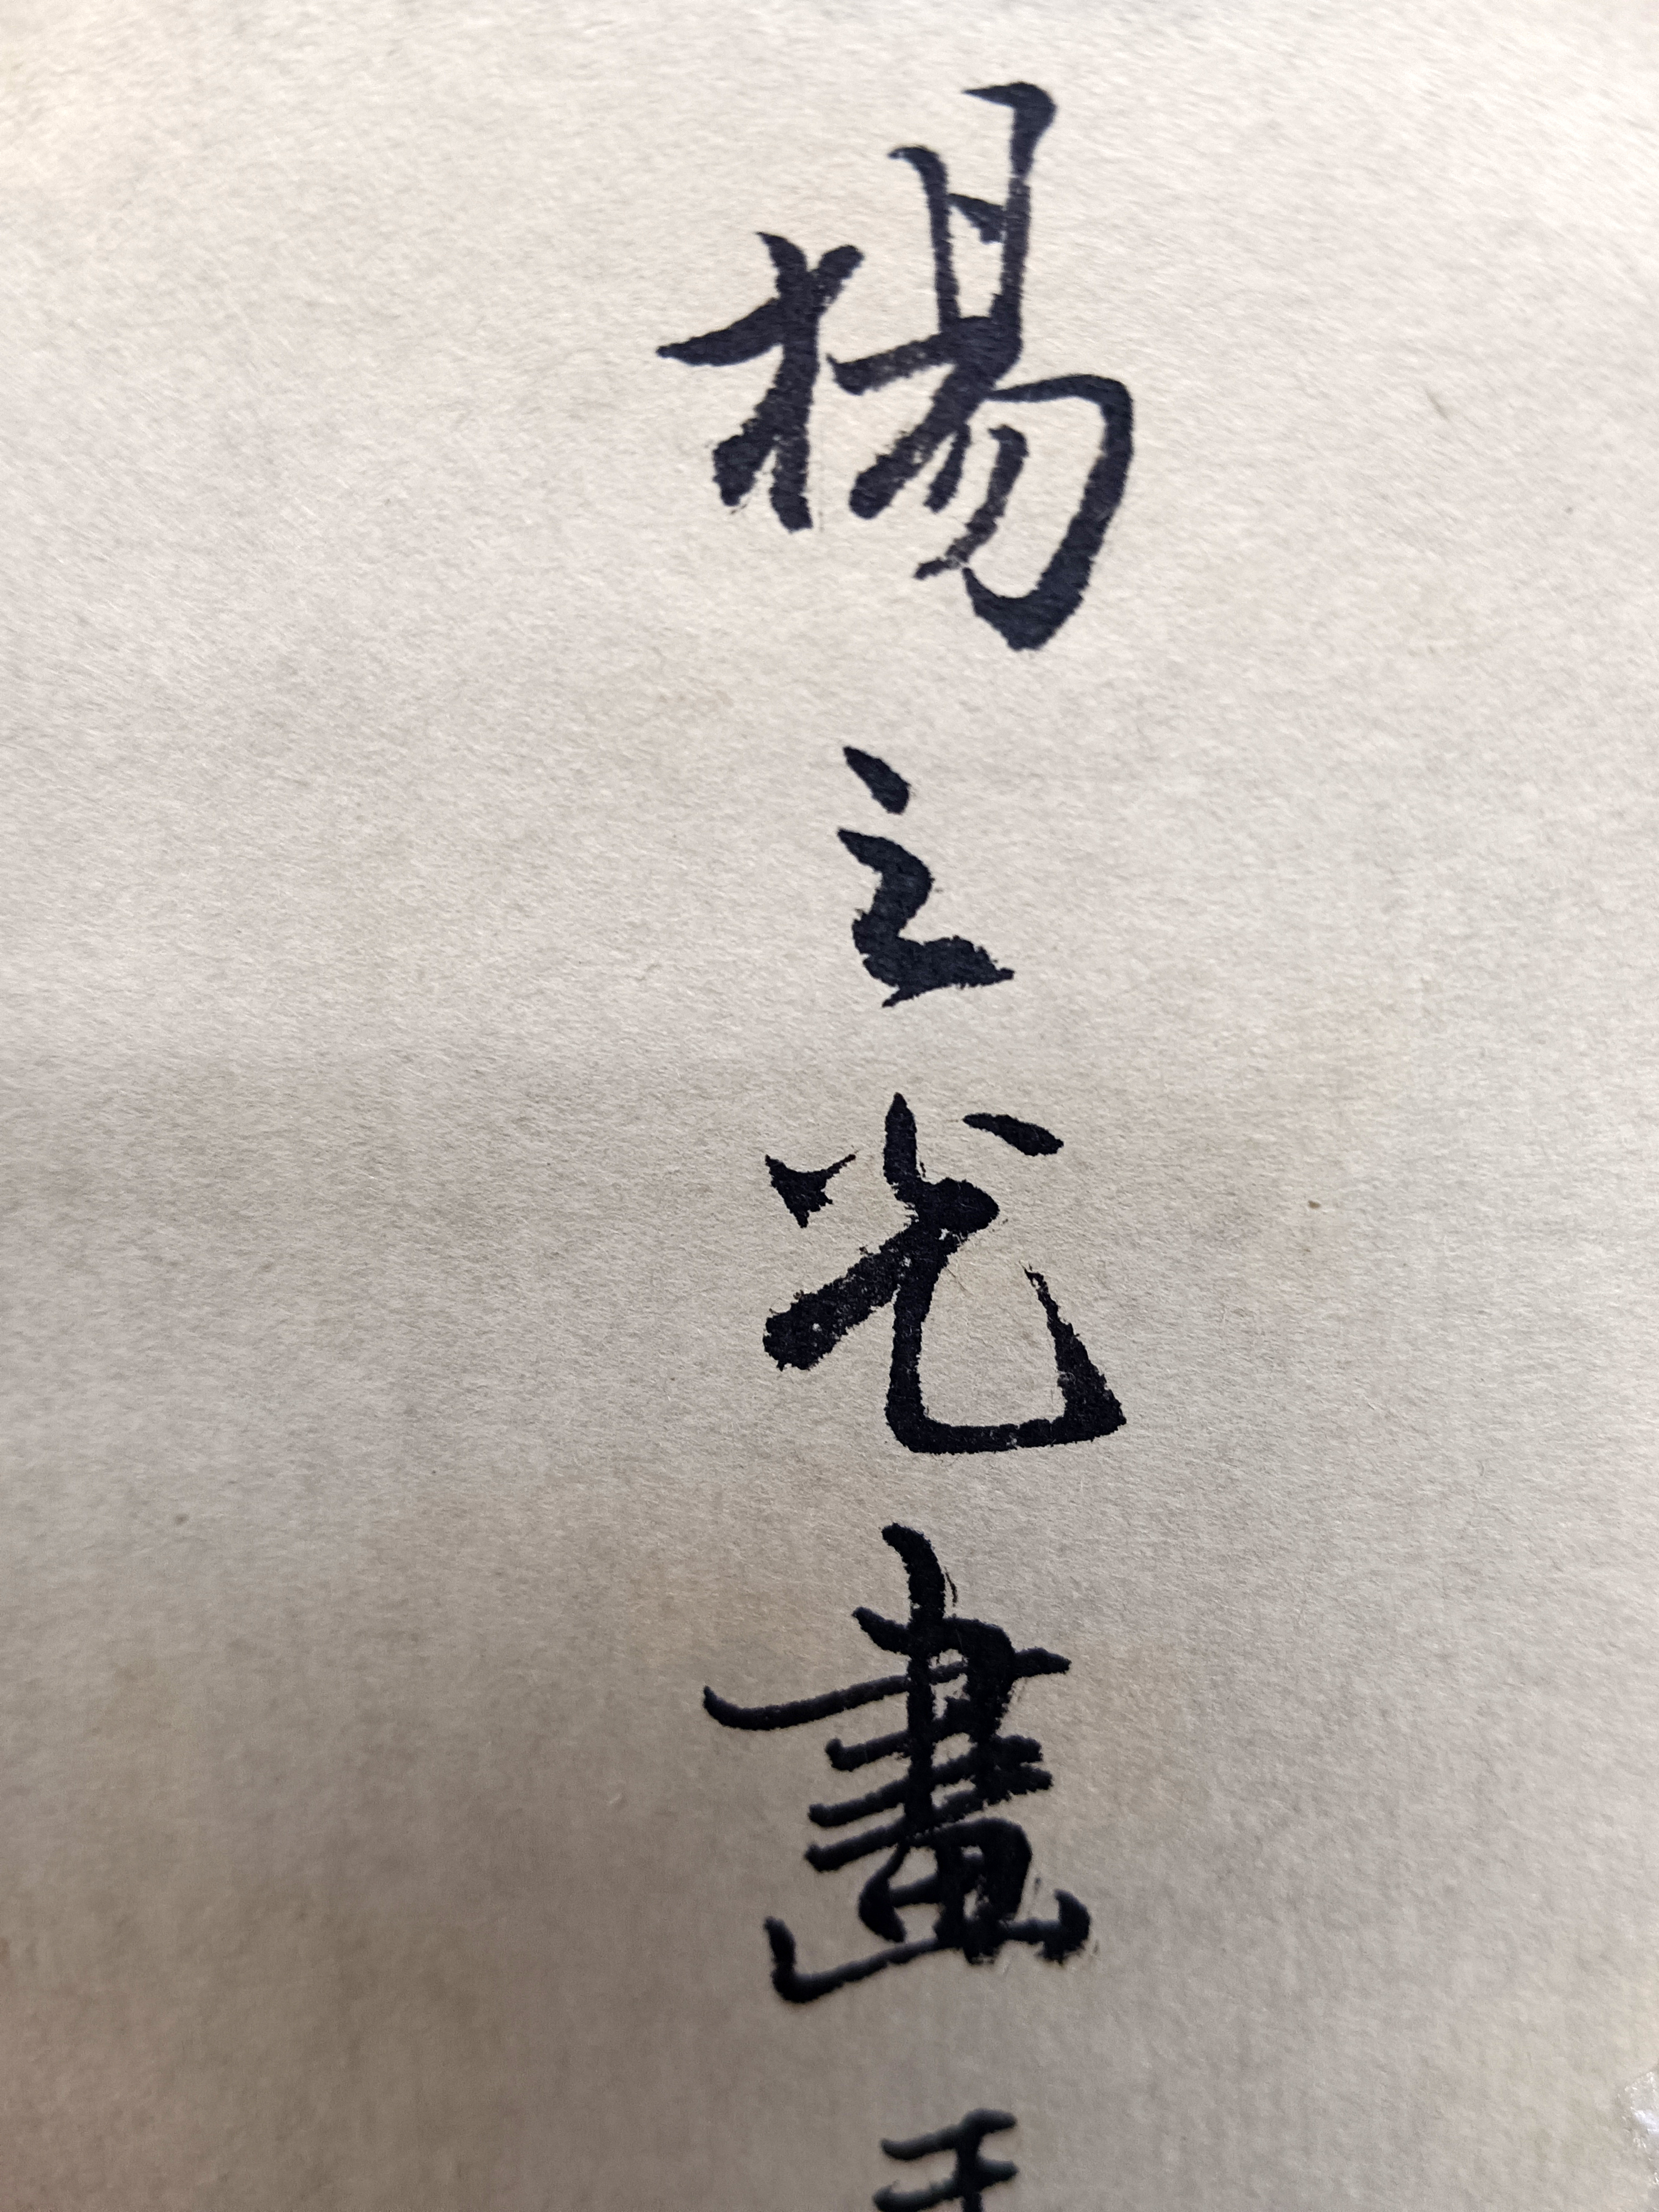 楊之光畫